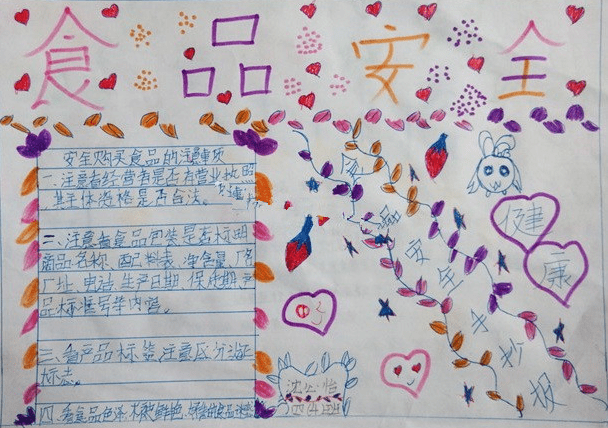 食品安全
安全购买食品的注意事项
一、注意看经营者是否有营业执照
其主体资格是否合法。
二、注意看食品包装是否标明
商品名称、配料表、净含量、厂名
厂址、电话、生产日期、保质期、产
品标准号等内容。
三、看产品标签,注意区分认证
标志。
四、看食品色泽
食品安全手抄报
健
康
沈
怡
四